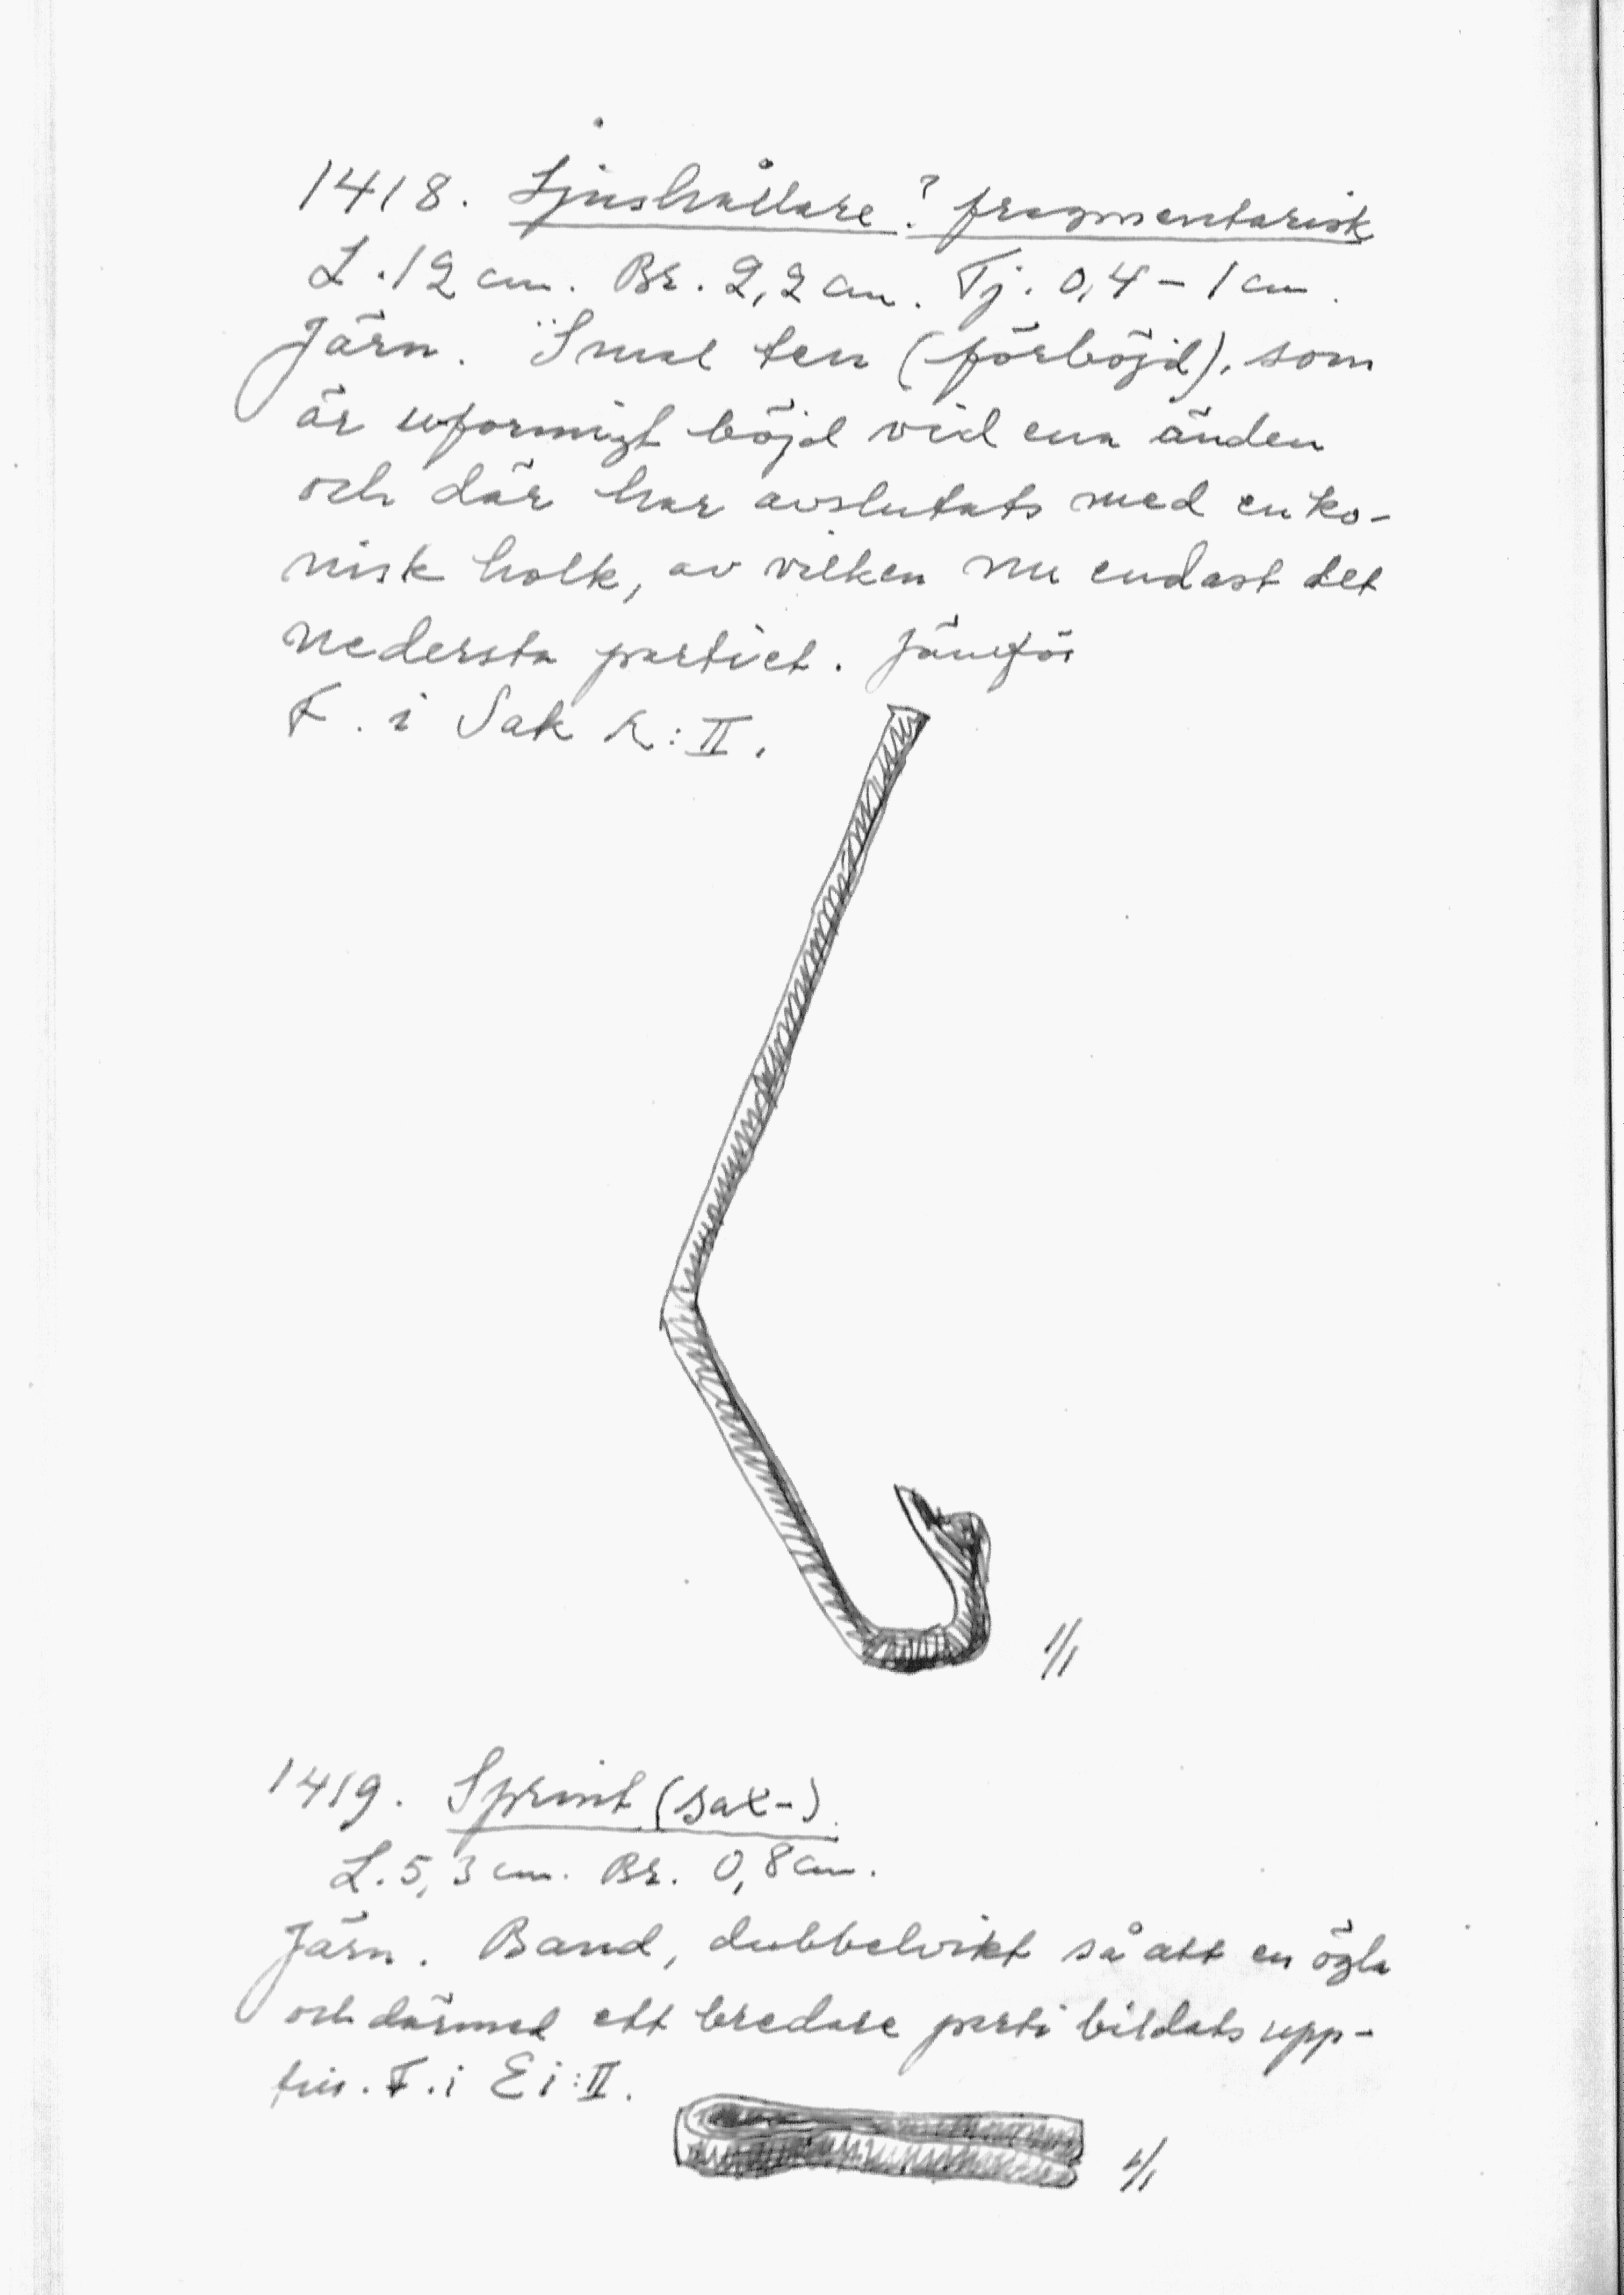 1418. Ljushållare? fragmentarisk
L. 12 cm. Br. 2,2 cm. Tj. 0,4 – 1 cm.
Järn. Smal ten (förböjd), som
är uformigt böjd vid ena änden
och där har avslutats med en ko-
nisk holk, av vilken nu endast det
nedersta partiet. Jämför
F. i Sak R:II.
1/1
1419. Sprint (sax-)
L. 5,3 cm. Br. 0,8 cm.
Järn. Band, dubbelvikt så att en ögla
och därmed ett bredare parti bildats upp-
till. F. i Ei:II.
1/1